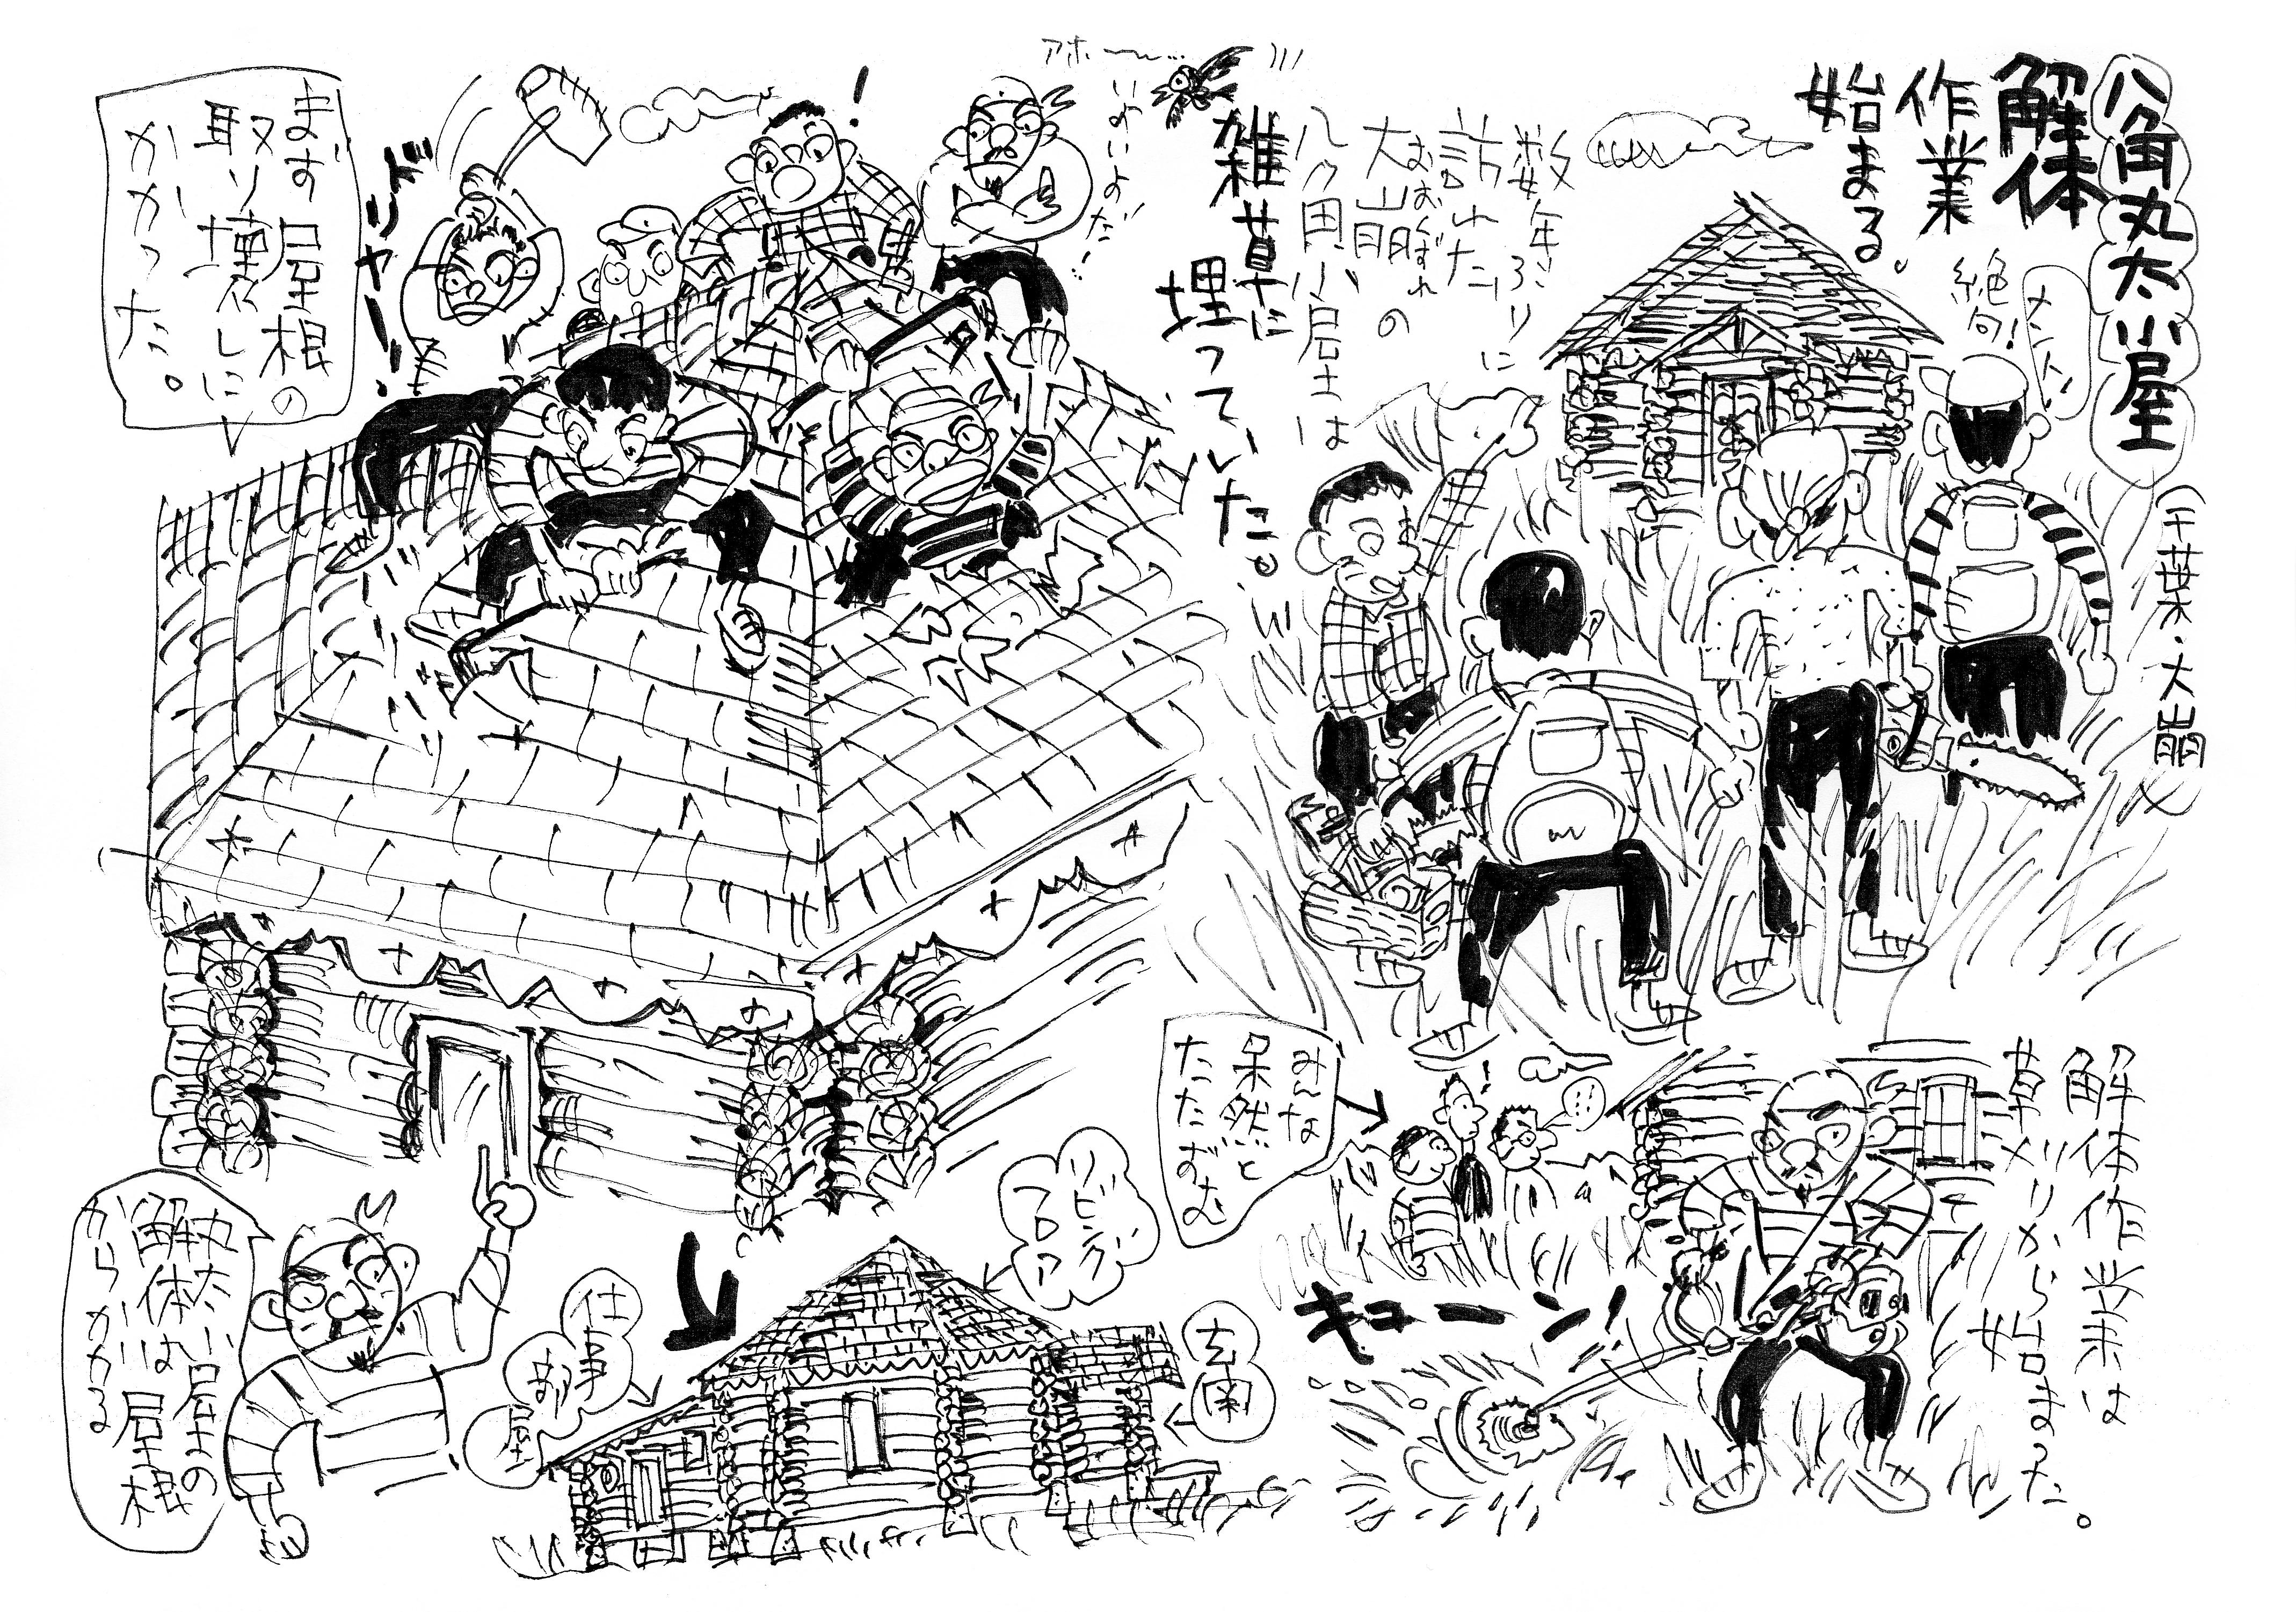 八角丸太小屋
解体
作業
始まる。
（千葉・大崩）
絶句！
数年ぶりに
訪れた
大崩の
おおくずれ
八角小屋は
雑草に
埋っていた。
アホ〜…
いよいよだ！
まず屋根の
取り壊しに
かかった。
ドリャー！
！
解体作業は
草刈りから始まった。
みんな
呆然と
たたずむ
キューン！
丸太小屋の
解体は屋根
からかかる
リビング
フロア
仕事
部屋
玄関